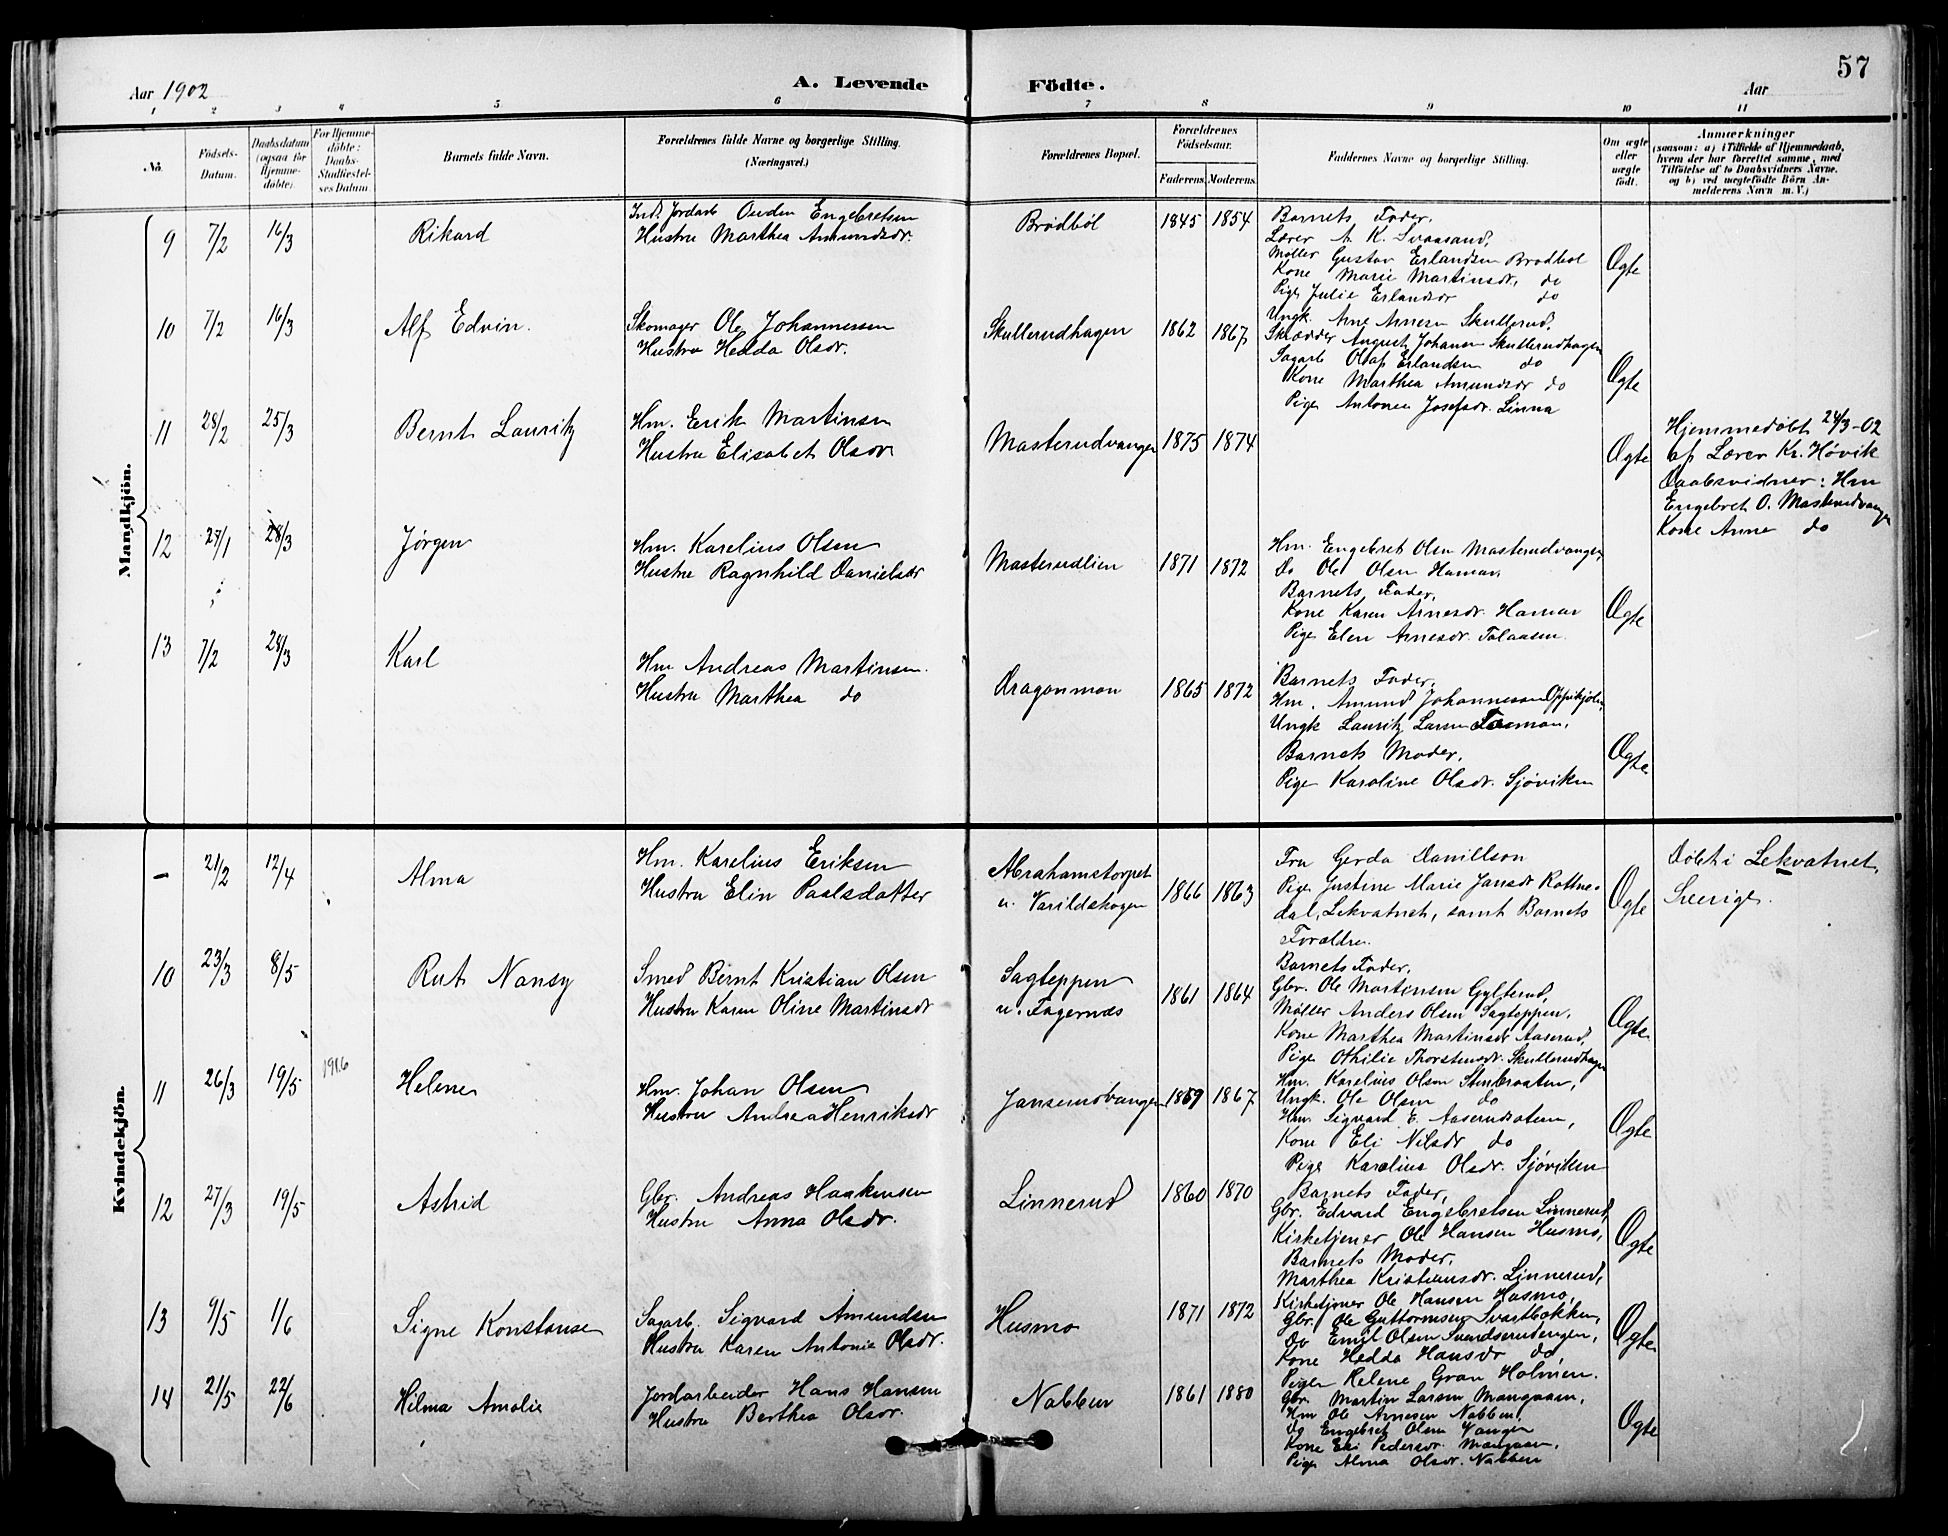 57
Aar 1902
A. Levende
Födte.
Aar
1 2 3 4 5 6 7 8 9 10 11
No. Födsels-Datum. Daabsdatum (ogsaa for Hjemme-döbte). For Hjemme-döbte: Daabs-Stadfæstel-ses Datum Barnets fulde Navn. Forældrenes fulde Navne og borgerlige Stilling. (Næringsvei.) Forældrenes Bopæl. Forældrenes Födselsaar. Faderens. Moderens. Faddernes Navne og borgerlige Stilling. Om ægte eller uægte født. Anmærkninger (saasom: a) i Tilfælde af Hjemmedaab, hvem der har forrettet samme, med Tilføielse af to Daabsvidners Navne, og b) ved uægtefödte Börn An-melderens Navn m. V.)
Mandkjön.
9 7/2 16/3 Rikard
Ind. Jordarb Ouden Engebretsen
Hustru Marthea Amundsdr.
Brødbøl 1845 1854
Barnets Fader,
Lærer A. K. Svaasand,
Møller Gustav Erlandsen Brødbøl
Kone Marie Martinsdr, do
Pige Julie Erlandsdr do
Ægte
10 7/2 16/3 Alf Edvin.
Skomager Ole Johannessen
Hustru Hedda Olsdr.
Skullerudhagen 1862 1867
Ungk. Arne Arnesen Skullerud,
Skrædder August Johansen Skullerudhagen
Sagarb Olaf Erlandsen do
Kone Marthea Amundsdr do
Pige Antonie Josefsdr. Linna
Ægte
11 28/2 25/3 Bernt Lauritz
Hm. Erik Martinsen
Hustru Elisabet Olsdr
Masterudvangen 1875 1874
Ægte
Hjemmedøbt 24/3-02
af Lærer Kr. Høvik
Daabsvidner: Hm
Engebret O. Masterudvangen
Kone Anne do
12 27/1 28/3 Jørgen
Hm. Karelius Olsen
Hustru Ragnhild Danielsdr
Masterudlien 1871 1872
Hm. Engebret Olsen Masterudvangen,
Do Ole Olsen Hamar,
Barnets Fader,
Kone Karen Arnesdr. Hamar
Pige Elen Arnesdr. Talaasen.
Ægte
13 7/2 28/3 Karl
Hm Andreas Martinsen.
Hustru Marthea do
Dragonmon 1865 1872
Barnets Fader,
Hm. Amund Johannessen Oppikjølen,
Ungk Lauritz Larsen
Barnets Moder,
Pige Karoline Olsdr. Sjøviken
Ægte
Kvindekjön.
- 21/2 12/4 Alma
Hm. Karelius Eriksen
Hustru Elin Paalsdatter
Abrahamstorpet
u. Varildskogen 1866 1863
Fru Gerda Danillson
Pige Justine Marie Jansdr Rottne-
dal, Lekvatnet, samt Barnets
Forældre.
Ægte
Døbt i Lekvatnet,
Sverige.
10 23/3 8/5 Rut Nansy
Smed Bernt Kristian Olsen
Hustru Karen Oline Martinsdr
Sagteppen
u. Fagernæs 1861 1864
Barnets Fader,
Gbr. Ole Martinsen Gylterud,
Møller Anders Olsen Sagteppen,
Kone Marthea Martinsdr Aaserud,
Pige Othilie Thorstensdr. Skullerudhagen
Ægte
11 26/3 19/5 Helene
Hm. Johan Olsen
Hustru Andrea Henriksdr
Janserudvangen 1859 1867
Hm. Karelius Olsen Stenbraaten,
Ungk. Ole Olsen do
Hm. Sigvard E. Aaserudsæteren,
Kone Eli Nilsdr do
Pige Karoline Olsdr. Sjøviken
Ægte
12 27/3 19/5 Astrid
Gbr. Andreas Haakensen
Hustru Anna Olsdr.
Linnerud 1860 1870
Barnets Fader,
Gbr. Edvard Engebretsen Linnerud,
Kirketjener Ole Hansen Husmo,
Barnets Moder,
Marthea Kristiansdr. Linnerud,
Ægte
13 9/5 1/6 Signe Konstanse
Sagarb. Sigvard Amundsen
Hustru Karen Antonie Olsdr.
Husmo 1871 1872
Kirketjener Ole Hansen Husmo,
Gbr. Ole Guttormsen Svartbækken,
Do Emil Olsen Svendserudengen,
Kone Hedda Hansdr do
Pige Helene Gran Holmen.
Ægte
14 21/5 22/6 Hilma Amalie
Jordarbeider Hans Hansen
Hustru Berthea Olsdr.
Nabben 1861 1880
Gbr. Martin Larsen Mangaaen,
Hm Ole Arnesen Nabben,
Do Engebret Olsen Vangen
Kone Eli Pedersdr. Mangaaen,
Pige Alma Olsdr. Nabben
Ægte